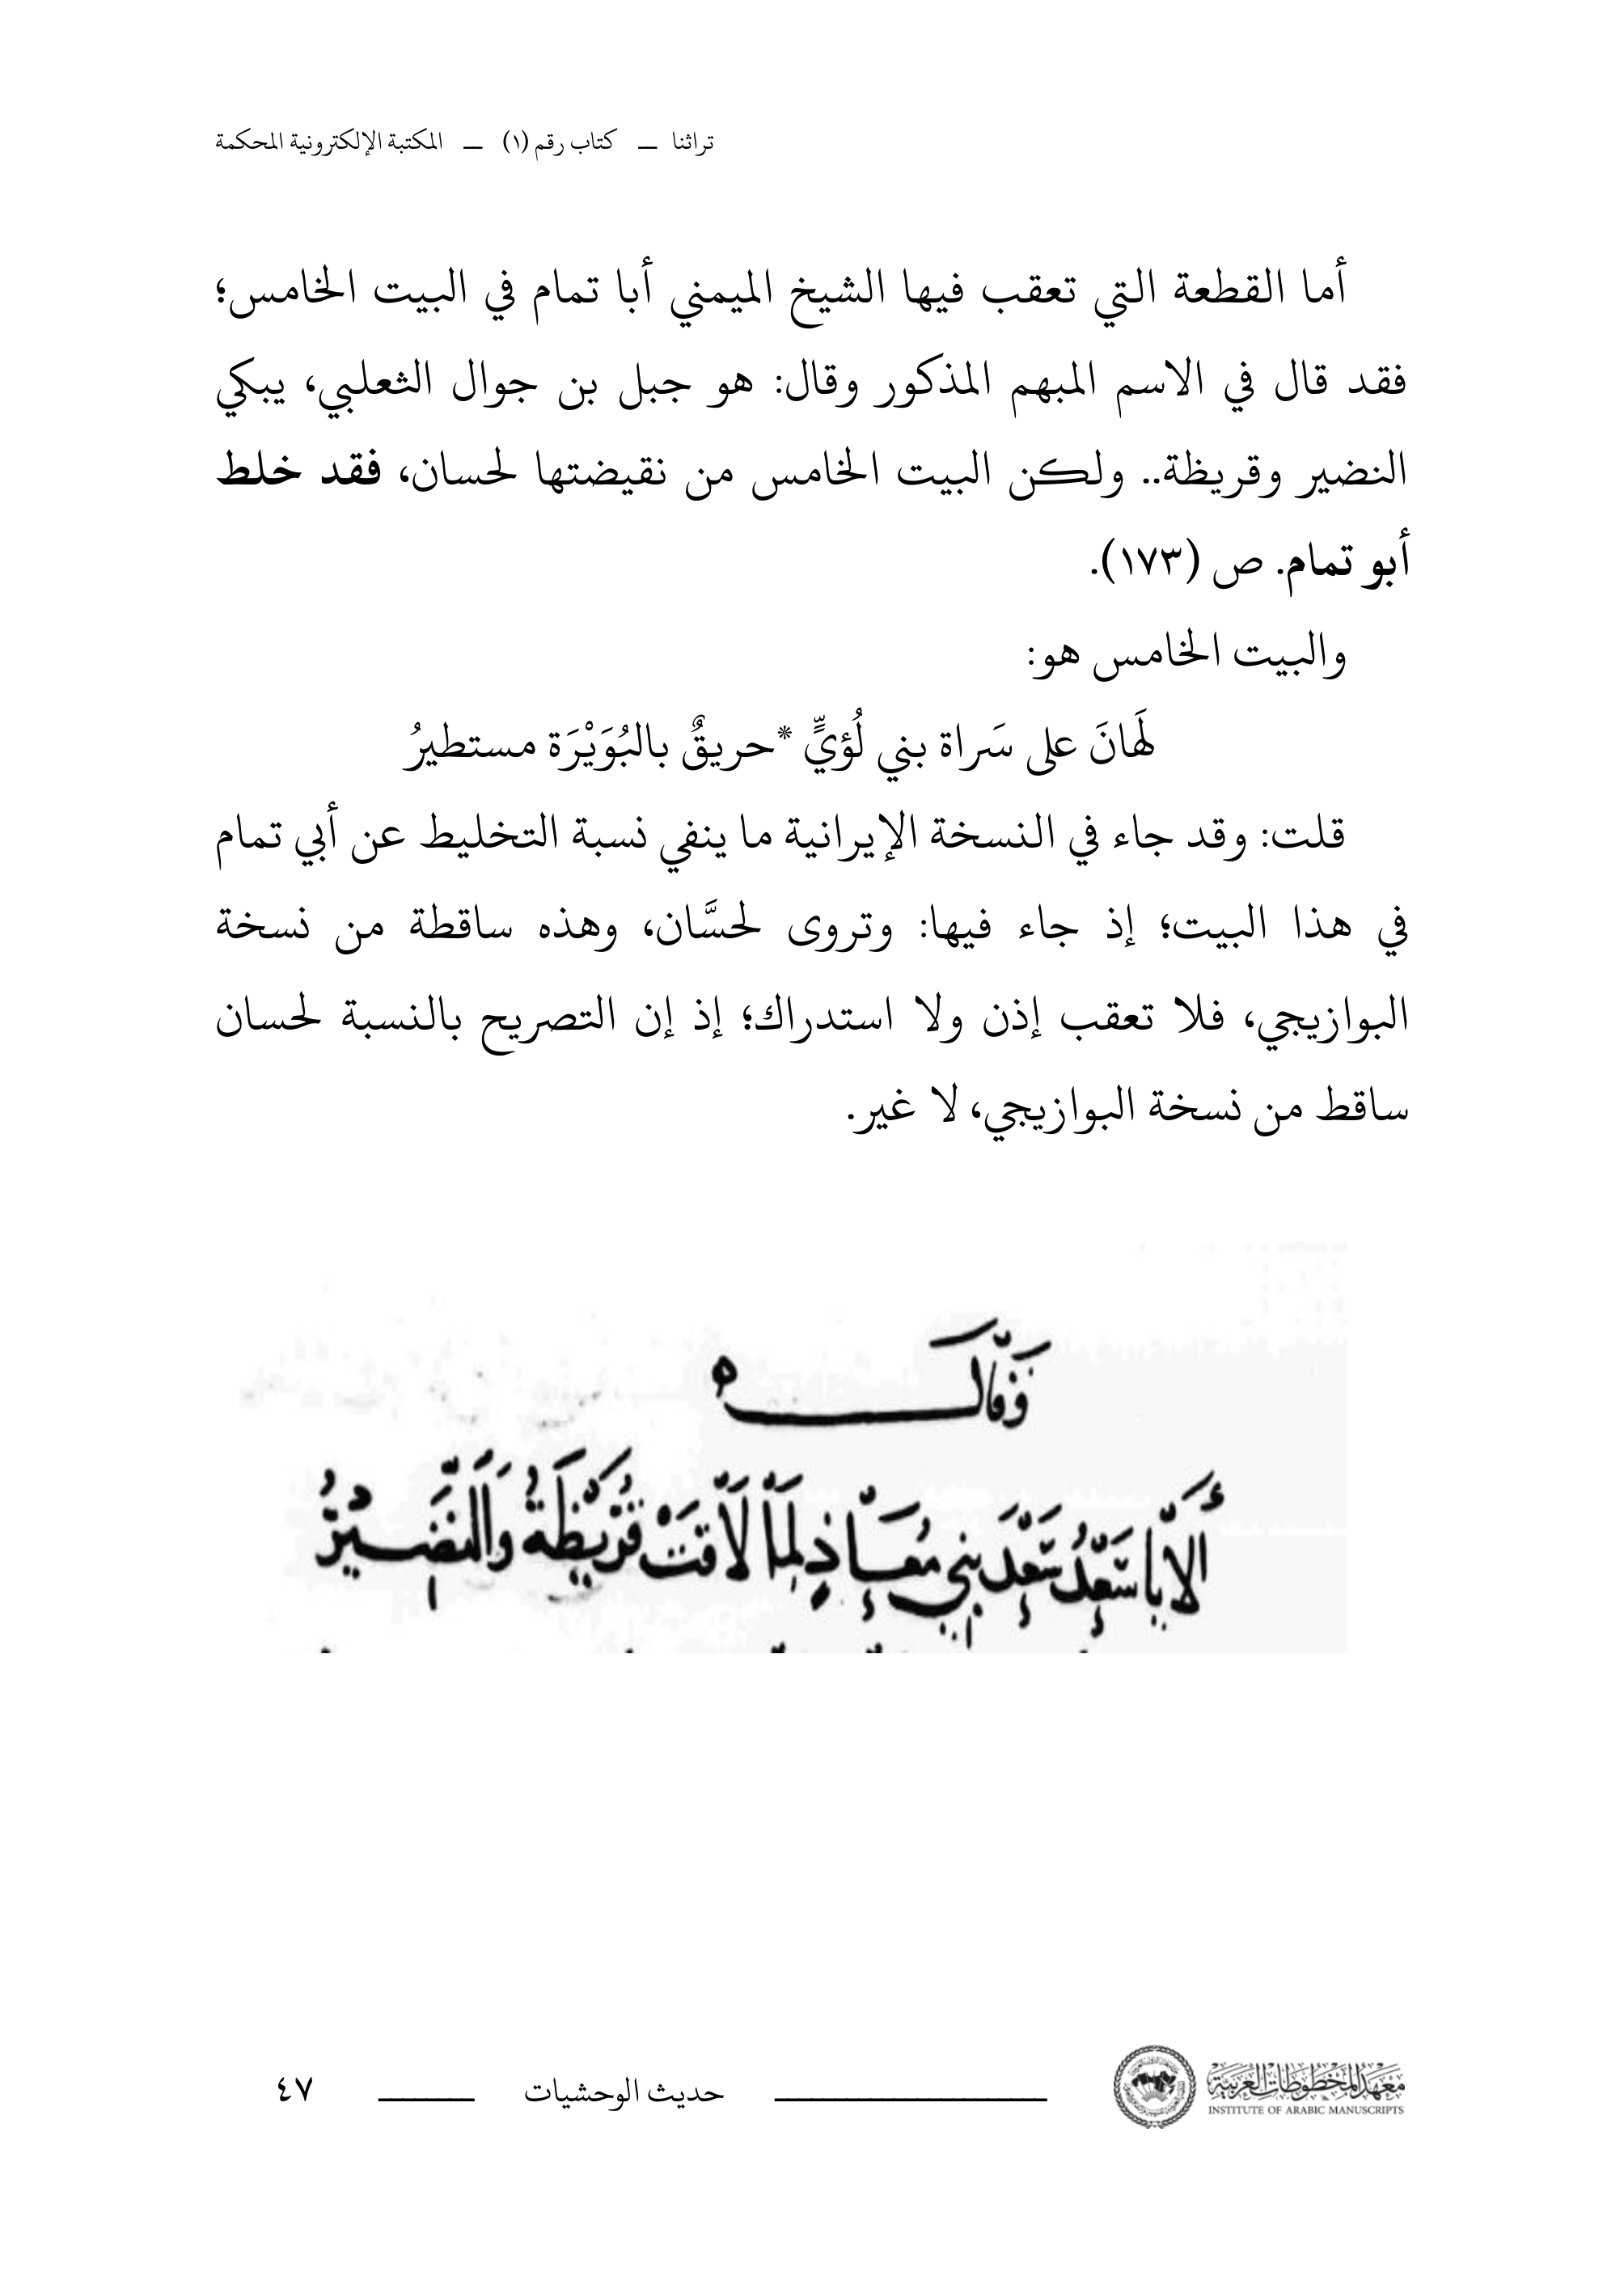 تراثنا — كتاب رقم (١) — المكتبة الإلكترونية المحكمة
أما القطعة التي تعقب فيها الشيخ الميمني أبا تمام في البيت الخامس؛
فقد قال في الاسم المبهم المذكور وقال: هو جبل بن جوال الثعلبي، يبكي
النضير وقريظة.. ولكن البيت الخامس من نقيضتها لحسان، فقد خلط
أبو تمام. ص (١٧٣).
والبيت الخامس هو:
لَهَانَ على سَراة بني لُؤيٍّ *حريقٌ بالبُوَيْرَة مستطيرُ
قلت: وقد جاء في النسخة الإيرانية ما ينفي نسبة التخليط عن أبي تمام
في هذا البيت؛ إذ جاء فيها: وتروى لحسَّان، وهذه ساقطة من نسخة
البوازيجي، فلا تعقب إذن ولا استدراك؛ إذ إن التصريح بالنسبة لحسان
ساقط من نسخة البوازيجي، لا غير.
وَقَالَ
أَلَا يَا سَعْدُ سَعْدَ بَنِي مُعَاذٍ لِمَا لَاقَتْ قُرَيْظَةُ وَالنَّضِيْرُ
معهد المخطوطات العربية
INSTITUTE OF ARABIC MANUSCRIPTS
حديث الوحشيات
٤٧